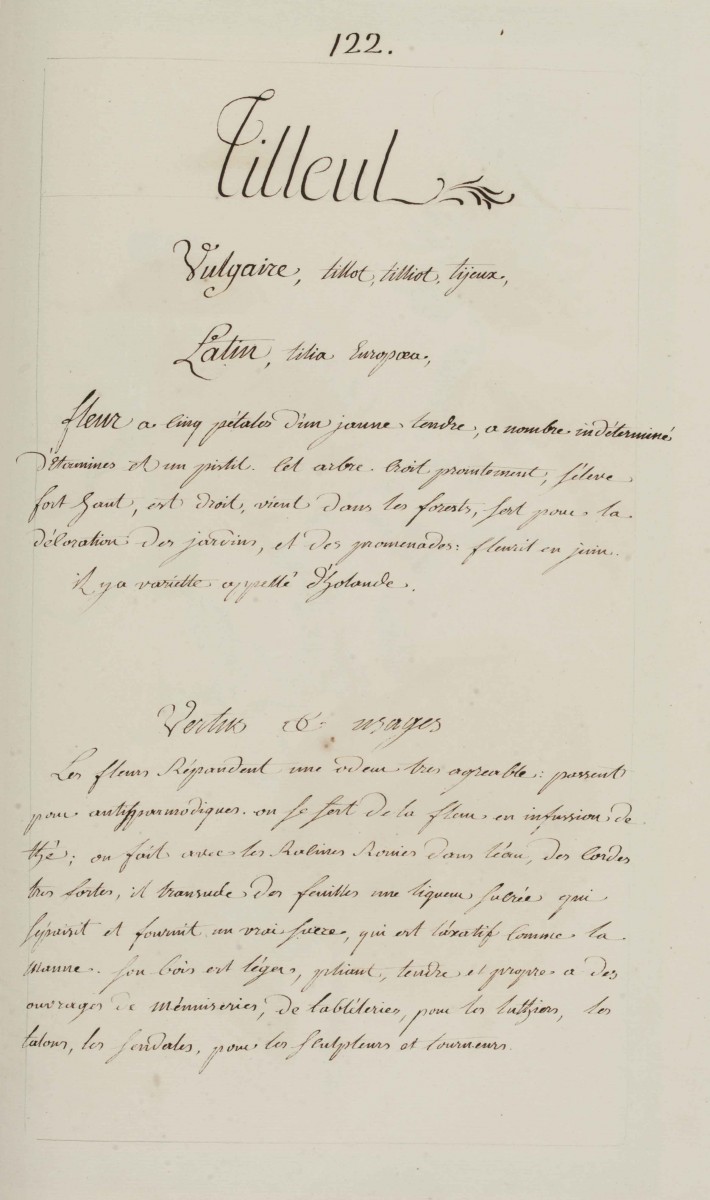 122.
Tilleul
Vulgaire, tillot, tilliot, tijeux,
Latin, tilia Europœa,
fleur a cinq pétales d'un jaune tendre, a nombre indéterminé
d'Etamines et un pistil. Cet arbre croit promtement, s'éleve
fort haut, est droit, vient dans les forests, sert pour la
décoration des jardins, et des promenades: fleurit en juin.
il y a variette appellé d'holande.
Vertus & usages
Les fleurs Répandent une odeur tres agreable: passent
pour antispasmodiques. on se sert de la fleur en infussion de
thé; on fait avec les Racines Rouies dans l'éau, des cordes
tres fortes, il transude des feuilles une liqueur sucrée qui
s'épaisit et fournit un vrai sucre, qui est láxatif comme la
manne. son bois est léger, pliant, tendre et propre a des
ouvrages de ménuiseries, de tabléteries, pour les luthiers, les
talons, les sendales, pour les sculpteurs et tourneurs.